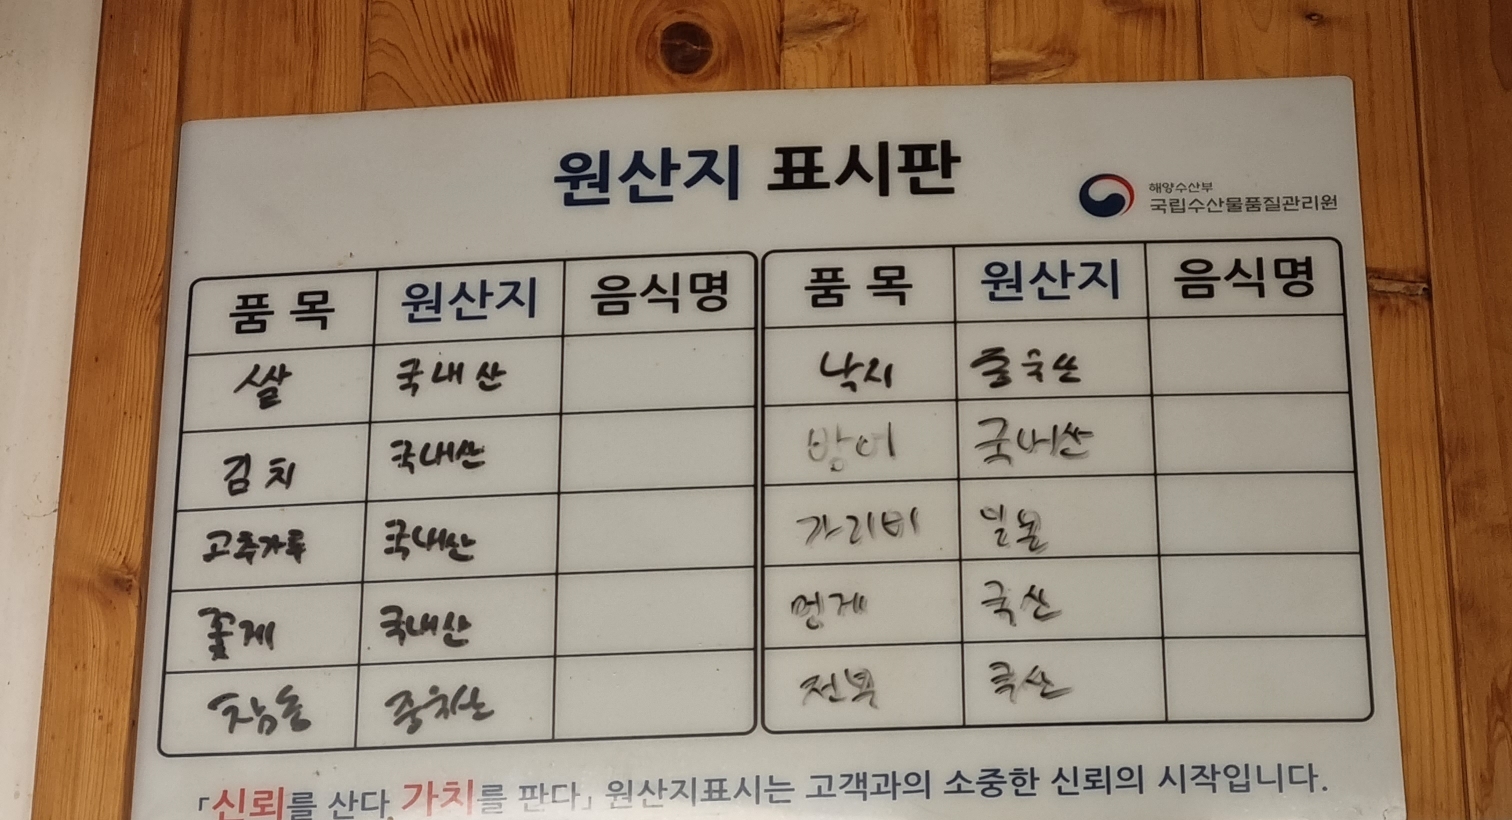 원산지 표시판
해양수산부
국립수산물품질관리원
품 목 원산지 음식명 품 목 원산지 음식명
쌀 국내산 낙지 중국산
김치 국내산 방어 국내산
고추가루 국내산 가리비 일본
꽃게 국내산 멍게 국산
참돔 중국산 전복 국산
「신뢰를 산다, 가치를 판다」 원산지표시는 고객과의 소중한 신뢰의 시작입니다.